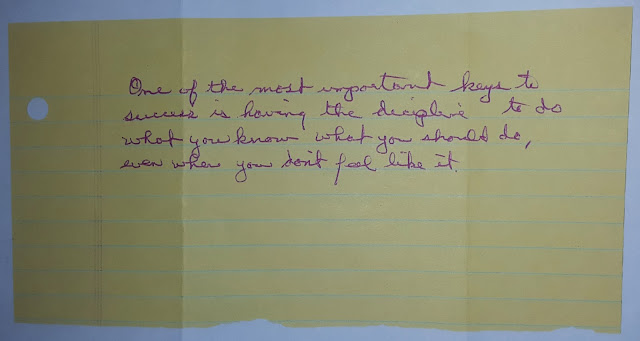 One of the most important keys to
success is having the decipline to do
what you know what you should do,
even when you don't feel like it.